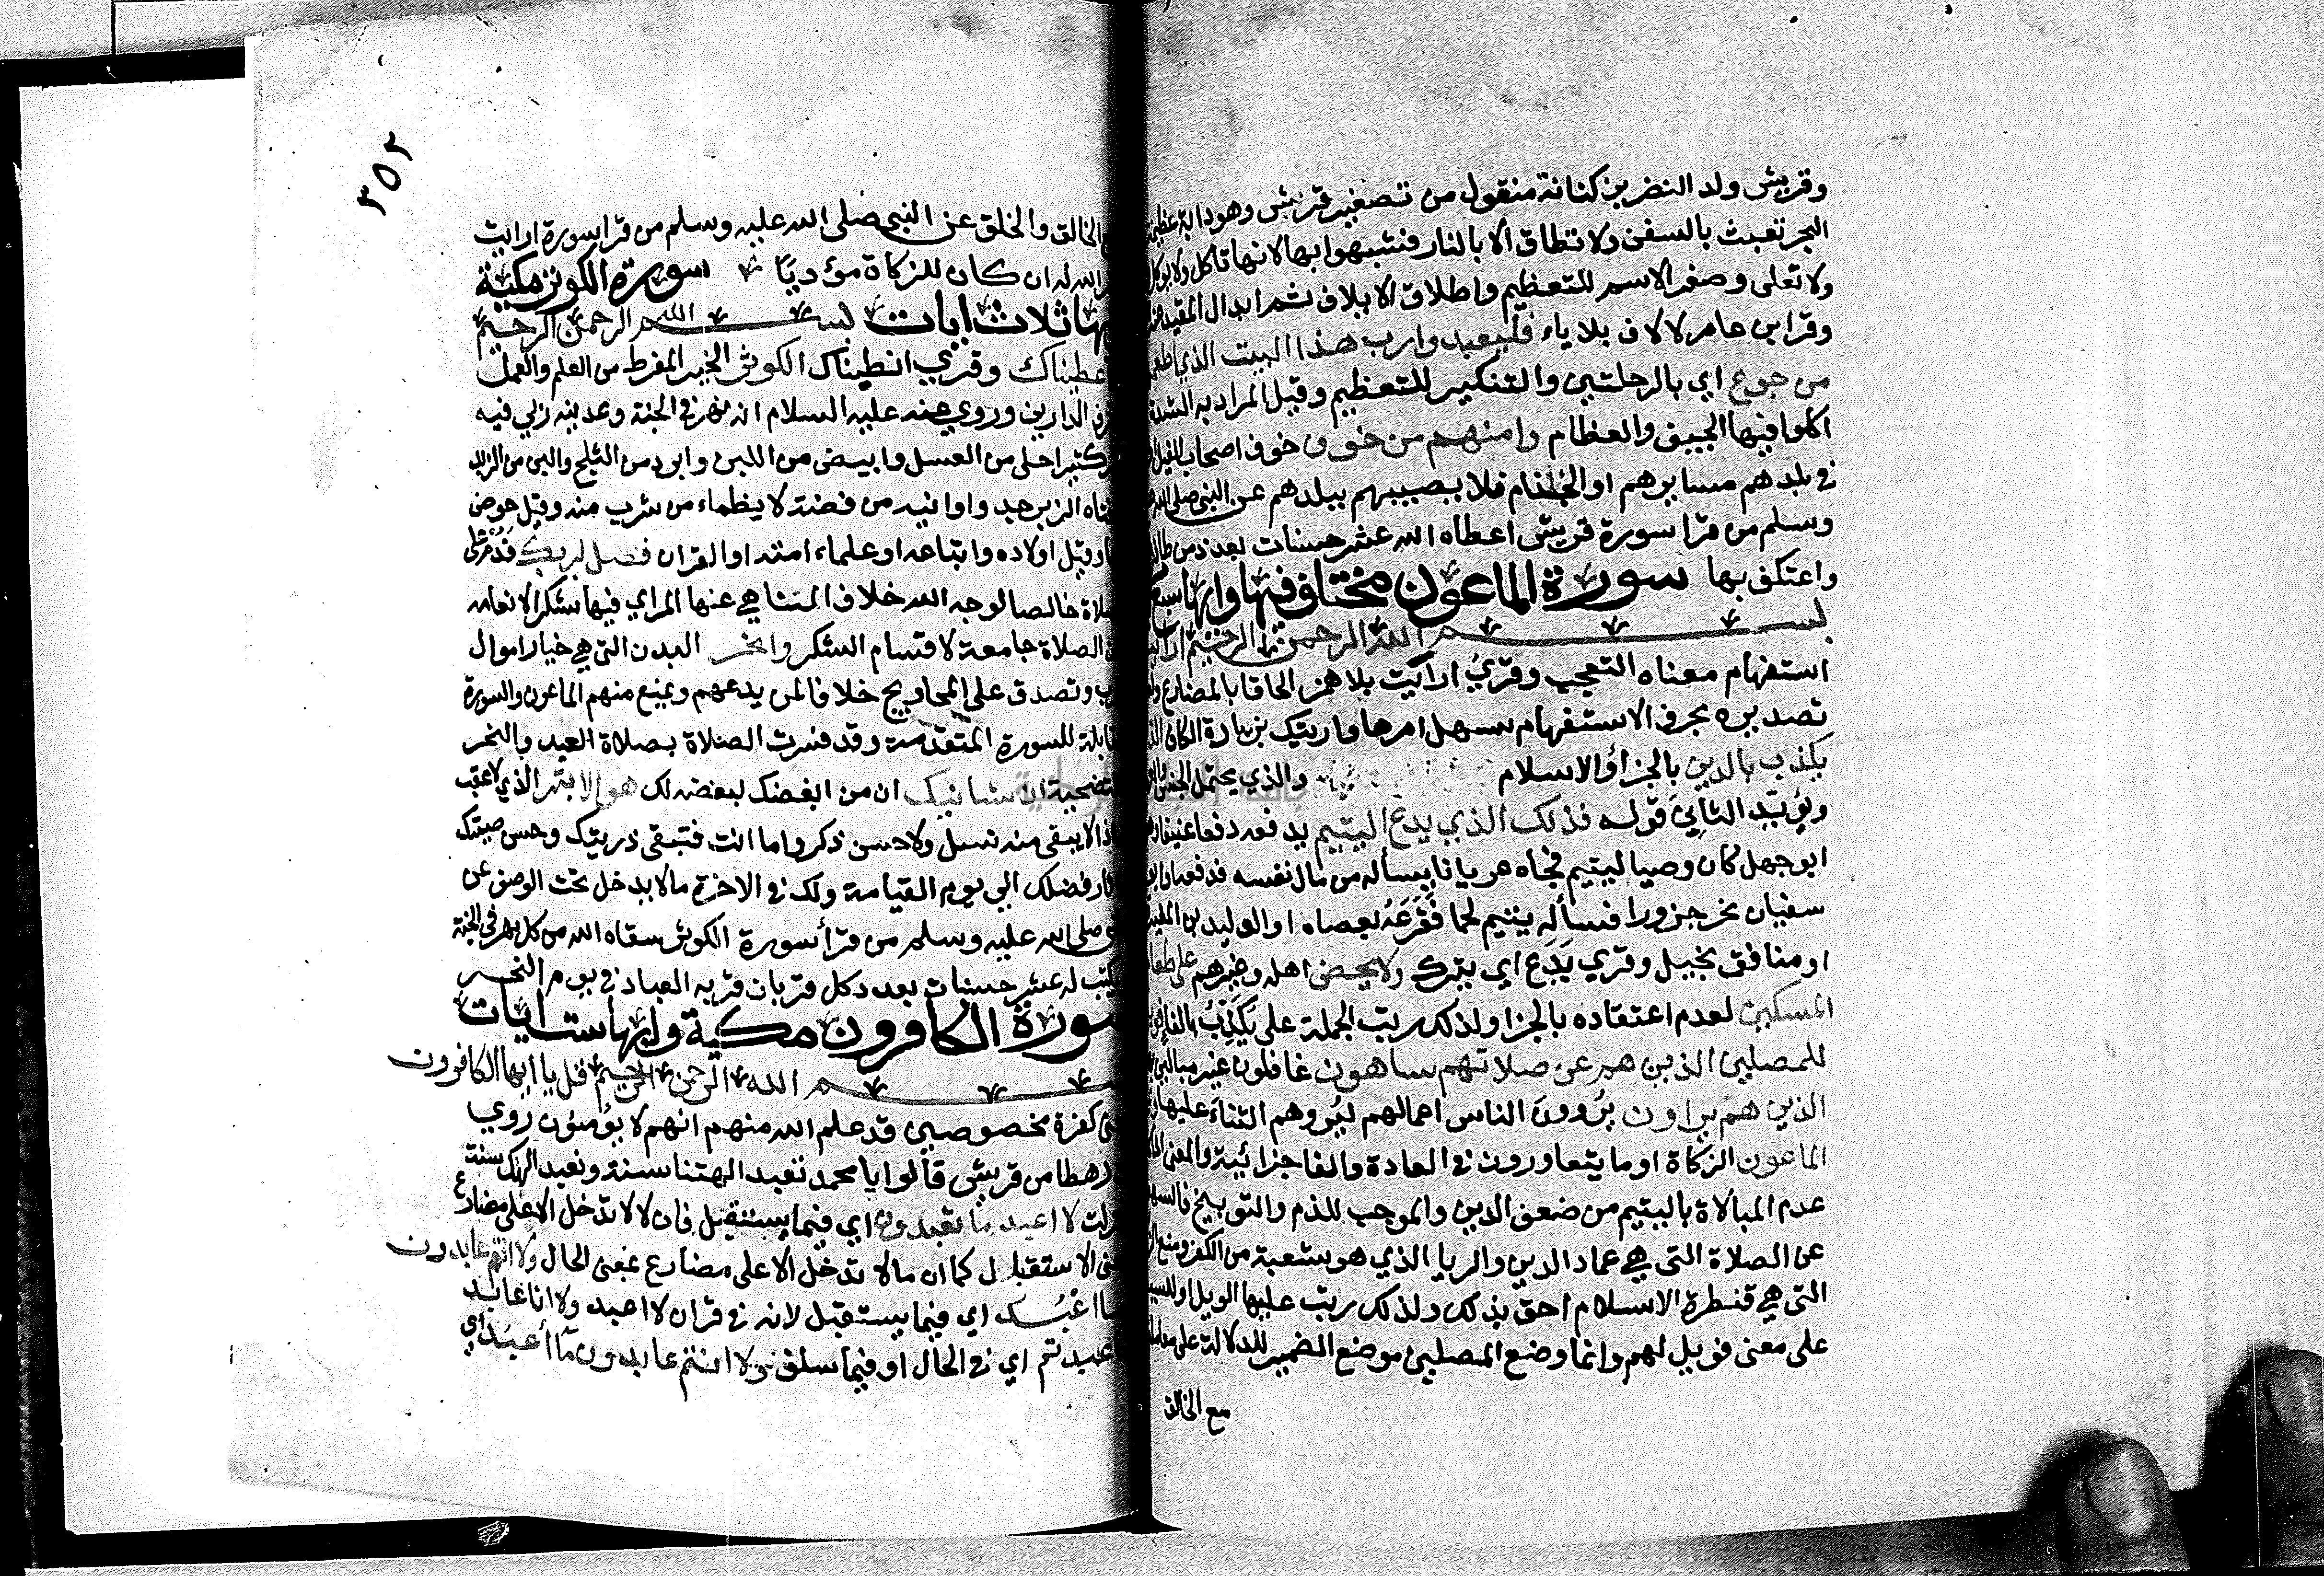 وقريش ولد النضر بن كنانة منقول من تصغير قريش وهو دابة عظيمة
البحر تعبث بالسفن ولا تطاق الا بالنار فشبهوا بها لانها تاكل ولا يوكل
ولا تعلى وصغر الاسم للتعظيم واطلاق الايلاف ثم ابدال المقيد عنه
وقرا ابن عامر لالاف بلا ياء فليعبدوا رب هذا البيت الذي اطعمهم
من جوع اي بالرحلتين والتنكير للتعظيم وقيل المراد به الشدة
اكلوا فيها الجيف والعظام وامنهم من خوف خوف اصحاب الفيل
في بلدهم مسايرهم او الجذام فلا يصيبهم ببلدهم عن النبي صلى الله
وسلم من قرا سورة قريش اعطاه الله عشر حسنات بعدد من طاف
واعتكف بها سورة الماعون مختلف فيها وايها سبع
بسم الله الرحمن الرحيم ارايت
استفهام معناه التعجب وقرئ اريت بلا همز الحاقا بالمضارع
تصديره بحرف الاستفهام سهل امرها واريتك بزيادة الكاف الذي
يكذب بالدين بالجزا والاسلام والذي يحتمل الجنس
ويؤيد الثاني قوله فذلك الذي يدع اليتيم يدفعه دفعا عنيفا
ابو جهل كان وصيا ليتيم فجاه عريانا يسأله من مال نفسه فدفعه
سفيان نحر جزورا فسأله يتيم لحما فقرعه بعصاه او الوليد بن المغيرة
او منافق بخيل وقري يدع اي يترك ولا يحض اهله وغيرهم على طعام
المسكين لعدم اعتقاده بالجزا ولذلك رتب الجملة على يكذب بالفا
للمصلين الذين هم عن صلاتهم ساهون غافلون غير مبالين
الذين هم يراون يرون الناس اعمالهم ليروهم الثناء عليها
الماعون الزكاة او ما يتعاورون في العادة والفا جزائية والمعنى
عدم المبالاة باليتيم من ضعف الدين والموجب للذم والتوبيخ فالسهو
عن الصلاة التي هي عماد الدين والريا الذي هو شعبة من الكفر ومنع
التي هي قنطرة الاسلام احق بذلك ولذلك رتب عليها الويل او للسببية
على معنى فويل لهم وانما وضع المصلين موضع الضمير للدلالة على
مع الخالق
٣٥٢
الخالق والخلق عن النبي صلى الله عليه وسلم من قرا سورة ارايت
الله له ان كان للزكاة مؤديا سورة الكوثر مكية
ثلاث ايات بسم الله الرحمن الرحيم
اعطيناك وقري انطيناك الكوثر الخير المفرط من العلم والعمل
الدارين وروي عنه عليه السلام انه نهر في الجنة وعدنيه ربي فيه
كثير احلى من العسل وابيض من اللبن وابرد من الثلج والين من الزبد
الزبرجد واوانيه من فضة لا يظماء من شرب منه وقيل حوض
وقيل اولاده واتباعه او علماء امته او القران فصل لربك فدم على
خالصا لوجه الله خلاف المتناهي عنها المراي فيها شكرا لانعامه
الصلاة جامعة لاقسام الشكر وانحر البدن التي هي خيار اموال
وتصدق على المحاويج خلافا لمن يدعهم ويمنع منهم الماعون والسورة
للسورة المتقدمة وقد فسرت الصلاة بصلاة العيد والنحر
ان شانيك ان من ابغضك لبغضه لك هو الابتر الذي لا عقب
لا يبقى منه نسل ولا حسن ذكر واما انت فتبقى ذريتك وحسن صيتك
فضلك الي يوم القيامة ولك في الاخرة ما لا يدخل تحت الوصف عن
صلى الله عليه وسلم من قرأ سورة الكوثر سقاه الله من كل نهر في الجنة
له عشر حسنات بعدد كل قربان قربه العباد في يوم النحر
سورة الكافرون مكية وايها ست ايات
الله الرحمن الرحيم قل يا ايها الكافرون
كفرة مخصوصين قد علم الله منهم انهم لا يؤمنون روي
رهطا من قريش قالوا يا محمد تعبد الهتنا سنة ونعبد الهك سنة
لا اعبد ما تعبدون اي فيما يستقبل فان لا لا تدخل الا على مضارع
الاستقبال كما ان ما لا تدخل الا على مضارع بمعنى الحال ولا انتم عابدون
ما اعبد اي فيما يستقبل لانه في قران لا اعبد ولا انا عابد
عبدتم اي في الحال او فيما سلف ولا انتم عابدون ما أعبد اي